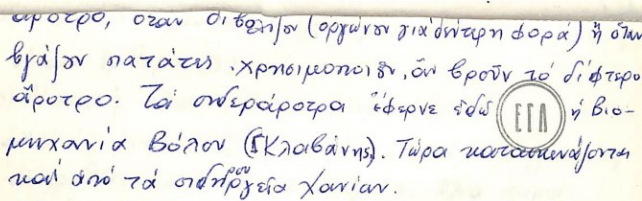 ἄροτρο, ὅταν διβολίζουν (ὀργώνουν γιὰ δεύτερη φορά) ἢ ὅταν
βγάζουν πατάτες. Χρησιμοποιοῦν, ἄν βροῦν τό δίφτερο
ἄροτρο. Τά σιδεράροτρα ἔφερνε ἐδῶ ἡ Βιο-
ΕΓΛ
μηχανία Βόλου (Γκλαβάνης). Τώρα κατασκευάζονται
καί ἀπό τά σιδηρουργεῖα Χανίων.